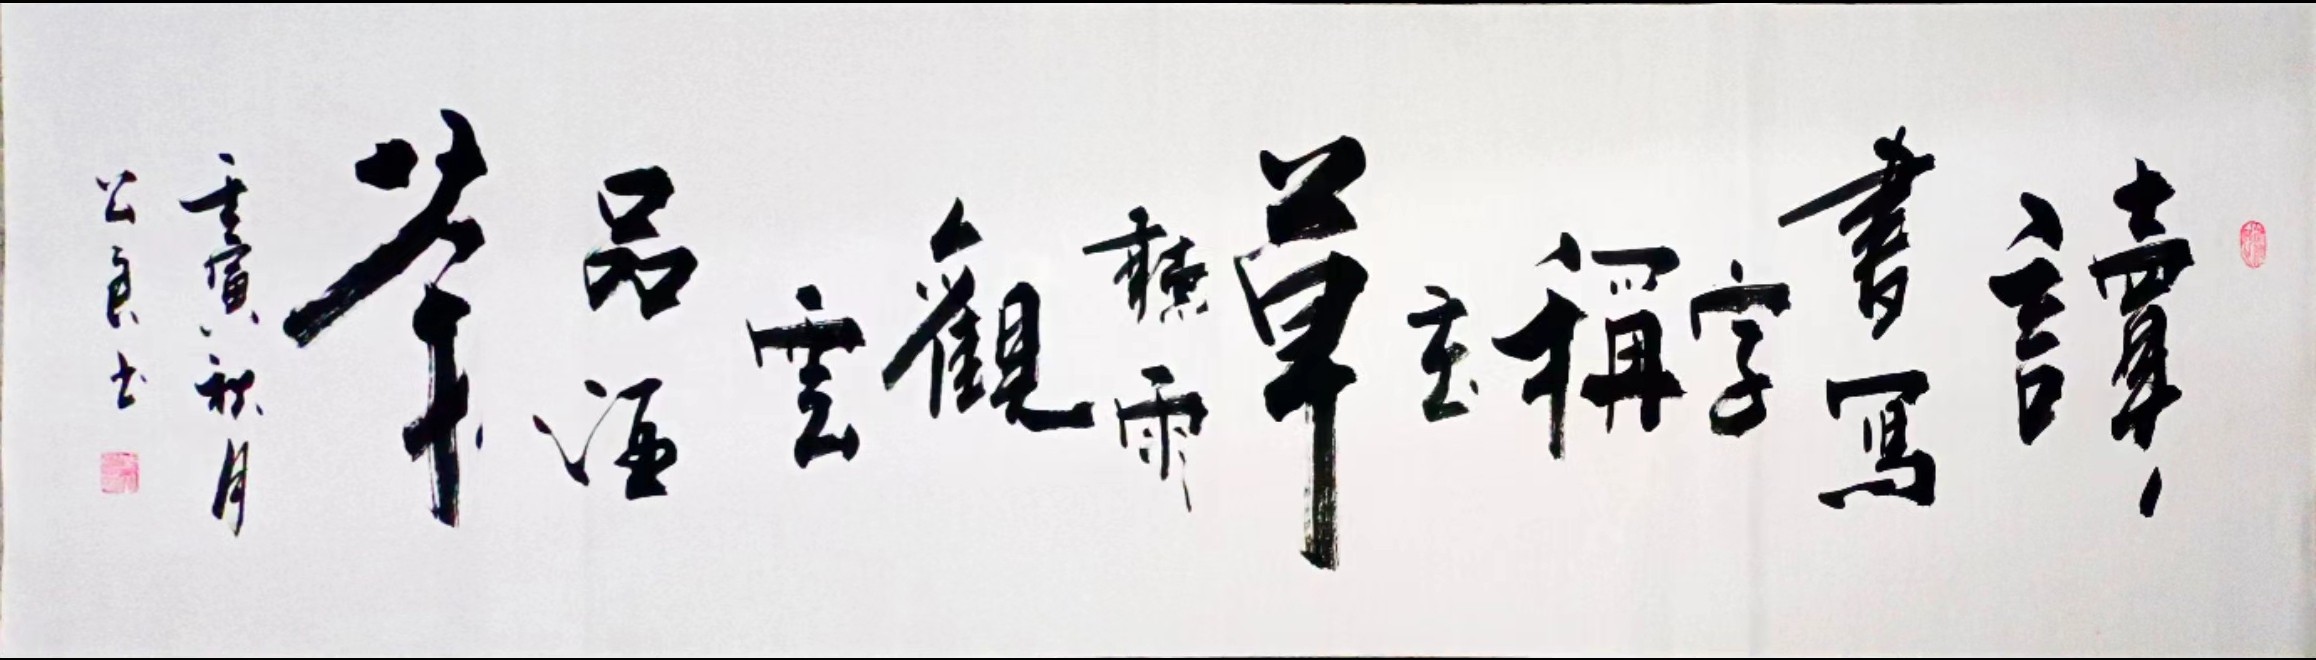 讀
書寫
字
種
花
草
聽雨
觀
雲
品酒
茶
壬寅秋月
公良书